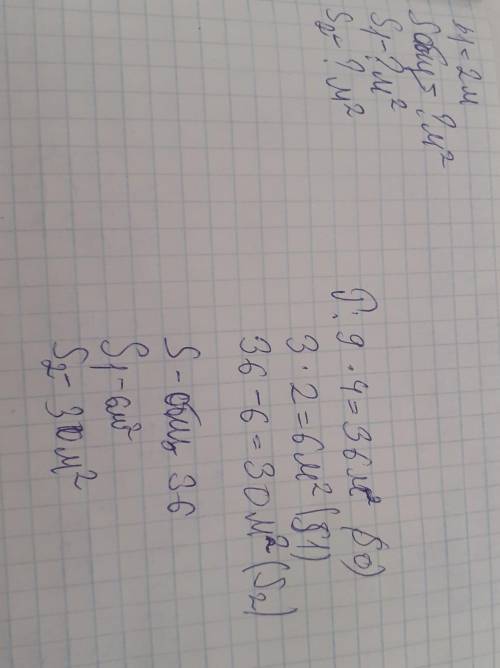 = 2м
Sобщ - ? м²
S1 - ? м²
S2 - ? м²
P: 9 · 4 = 36 м² (So)
3 · 2 = 6 м² (S1)
36 - 6 = 30 м² (S2)
S - общ 36
S1 - 6 м²
S2 - 30 м²